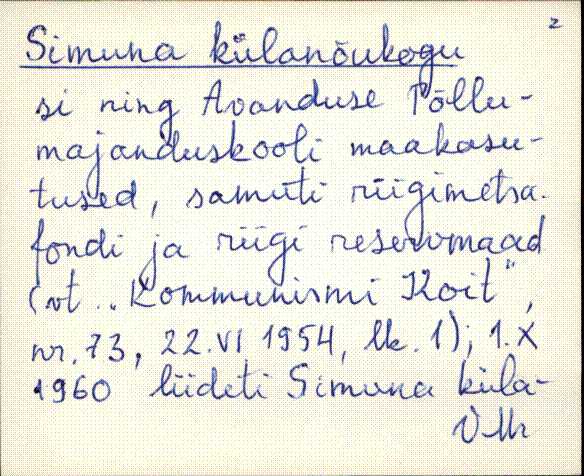 2
Simuna külanõukogu
si ning Avanduse Põllu-
majanduskooli maakasu-
tused, samuti riigimetsa-
fondi ja riigi reservmaad
(vt. „Kommunismi Koit",
nr. 73, 22.VI 1954, lk. 1); 1.X
1960 liideti Simuna küla-